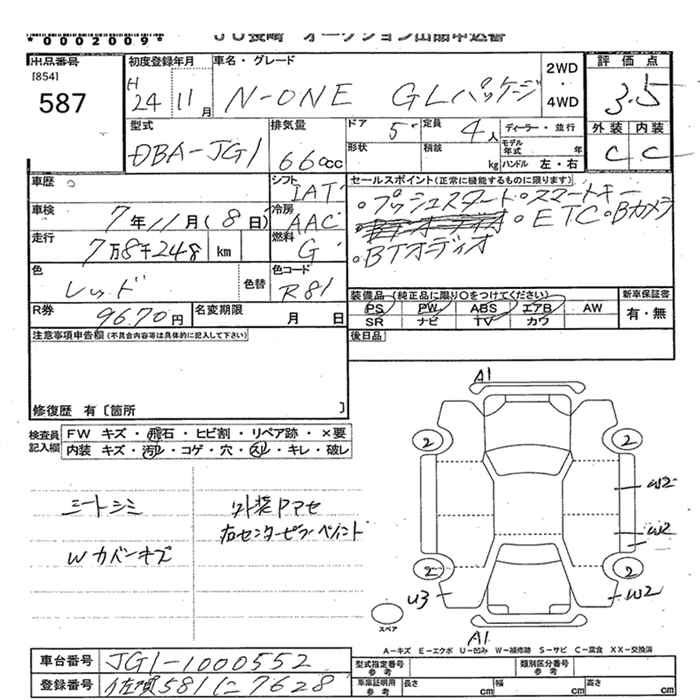 *0002009*
JU長崎 オークション出品申込書
出品番号
[854]
587
初度登録年月
H
24 11月
車名・グレード
N-ONE GLパッケージ
2WD
・
4WD
評価点
3.5
外装 内装
C C
型式
DBA-JG1
排気量
660cc
ドア 5
定員 4人
ディーラー・並行
形状
積載 kg
モデル年式 年
ハンドル 左・右
車歴
シフト
IAT
セールスポイント(正常に機能するものに限ります)
・プッシュスタート ・スマートキー
・ETC ・Bカメラ
・BTオーディオ
車検
7年11月(8日)
冷房
AAC
走行
7万8千248 km
燃料
G
色
レッド
色替
色コード
R81
R券
9670円
名変期限
月 日
装備品(純正品に限り○をつけてください)
PS PW ABS エアB AW
SR ナビ TV カワ
新車保証書
有・無
注意事項申告欄(不具合内容等は具体的に記入して下さい)
後日品
修復歴 有[箇所 ]
検査員
記入欄
FW キズ・飛石・ヒビ割・リペア跡・×要
内装 キズ・汚れ・コゲ・穴・スレ・キレ・破レ
シートシミ
Wカバーキズ
外装アマセ
右センターピラーペイント
A1
2
2
W2
W2
2
2
U3
W2
スペア
A1
A-キズ E-エクボ U-凹み W-補修跡 S-サビ C-腐食 XX-交換済
車台番号
JG1-1000552
登録番号
佐賀581に7628
型式指定番号
参考
類別区分番号
参考
車庫証明用
参考
長さ cm
幅 cm
高さ cm